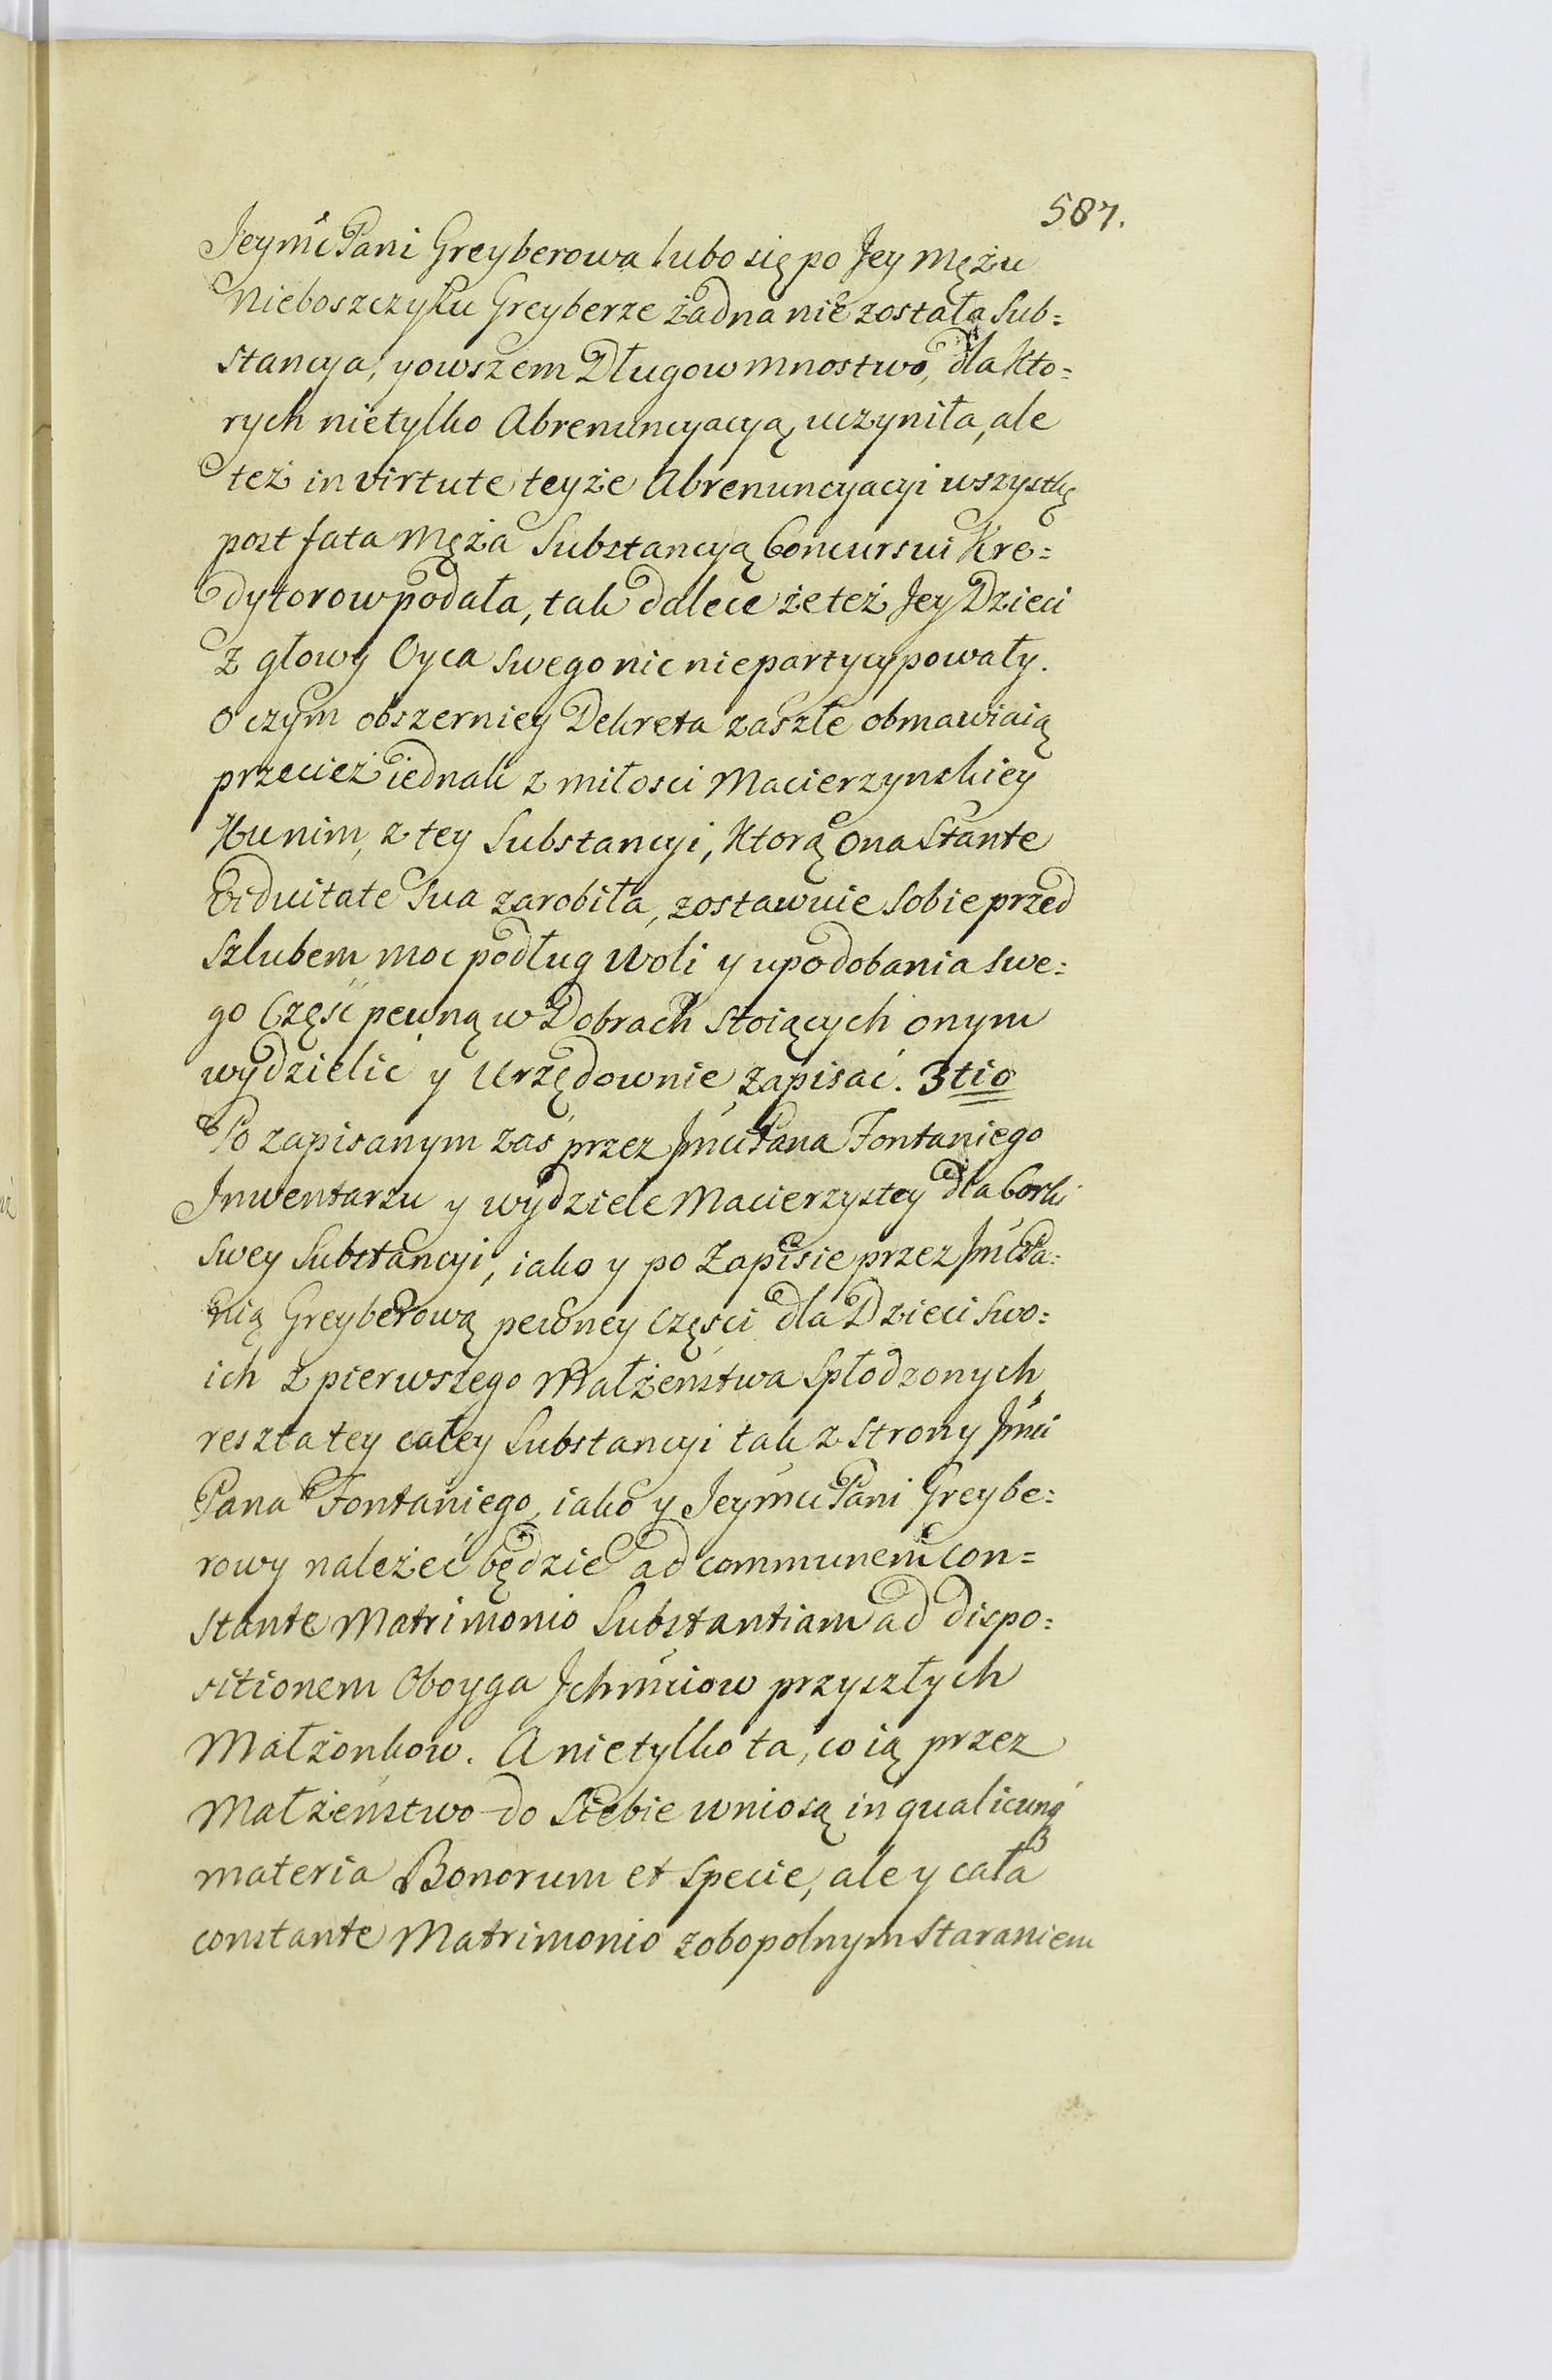 587.
Jeymć Pani Greyberowa lubo się po Jey Mężu
Nieboszczyku Greyberze żadna nie została Sub=
stancya, y owszem Długow mnostwo, dla kto=
rych nietylko Abrenuncyacyą uczyniła, ale
też in virtute teyże Abrenuncyacyi wszystkę
post fata Męża Substancyą Concursui Kre=
dytorow podała, tak dalece że też Jey Dzieci
z głowy Oyca swego nic niepartycypowały.
O czym obszerniey Dekreta zaszłe obmawiaią
przecież iednak z miłosci Macierzynskiey
Ku nim, z tey Substancyi, Ktorą Ona Stante
Viduitate Sua zarobiła, zostawuie Sobie przed
Szlubem moc podług Woli y upodobania swe=
go Część pewną w Dobrach stoiących onym
wydzielić y Urzędownie zapisać. 3tio
Po zapisanym zaś przez Jmci Pana Fontaniego
Inwentarzu y wydziele Macierzystey dla Corki
Swey Substancyi, iako y po Zapisie przez Jmć Pa=
nią Greyberową pewney Częsci dla Dzieci Swo=
ich z pierwszego Małżeństwa Spłodzonych
reszta tey całey Substancyi tak z Strony Jmci
Pana Fontaniego, iako y Jeymci Pani Greybe=
rowy należeć będzie ad communem con=
stante Matrimonio Substantiam ad dispo=
sitionem Oboyga Ichmciow przyszłych
Małżonkow. A nietylko ta, co ią przez
Małżeństwo do Siebie wniosą in qualicunq
materia Bonorum et Specie, ale y cała
constante Matrimonio zobopolnym Staraniem